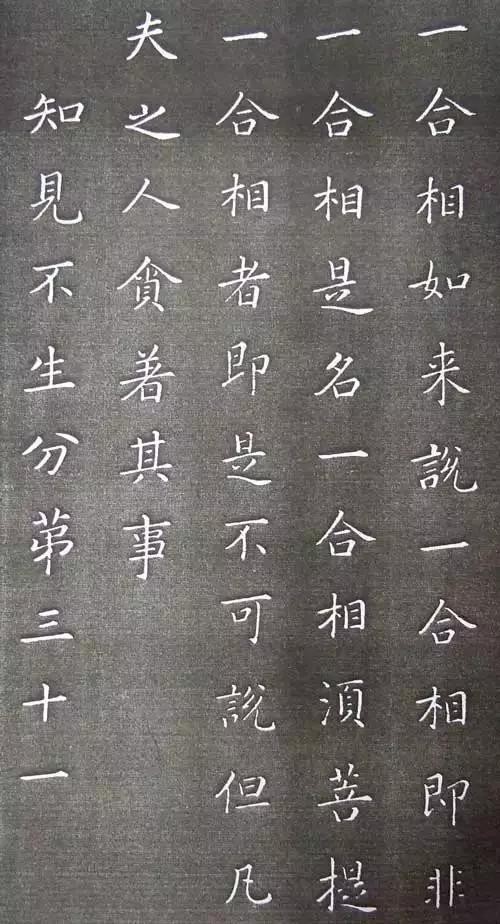 一合相如来說一合相即非
一合相是名一合相湏菩提
一合相者即是不可說但凡
夫之人貪著其事
知見不生分苐三十一